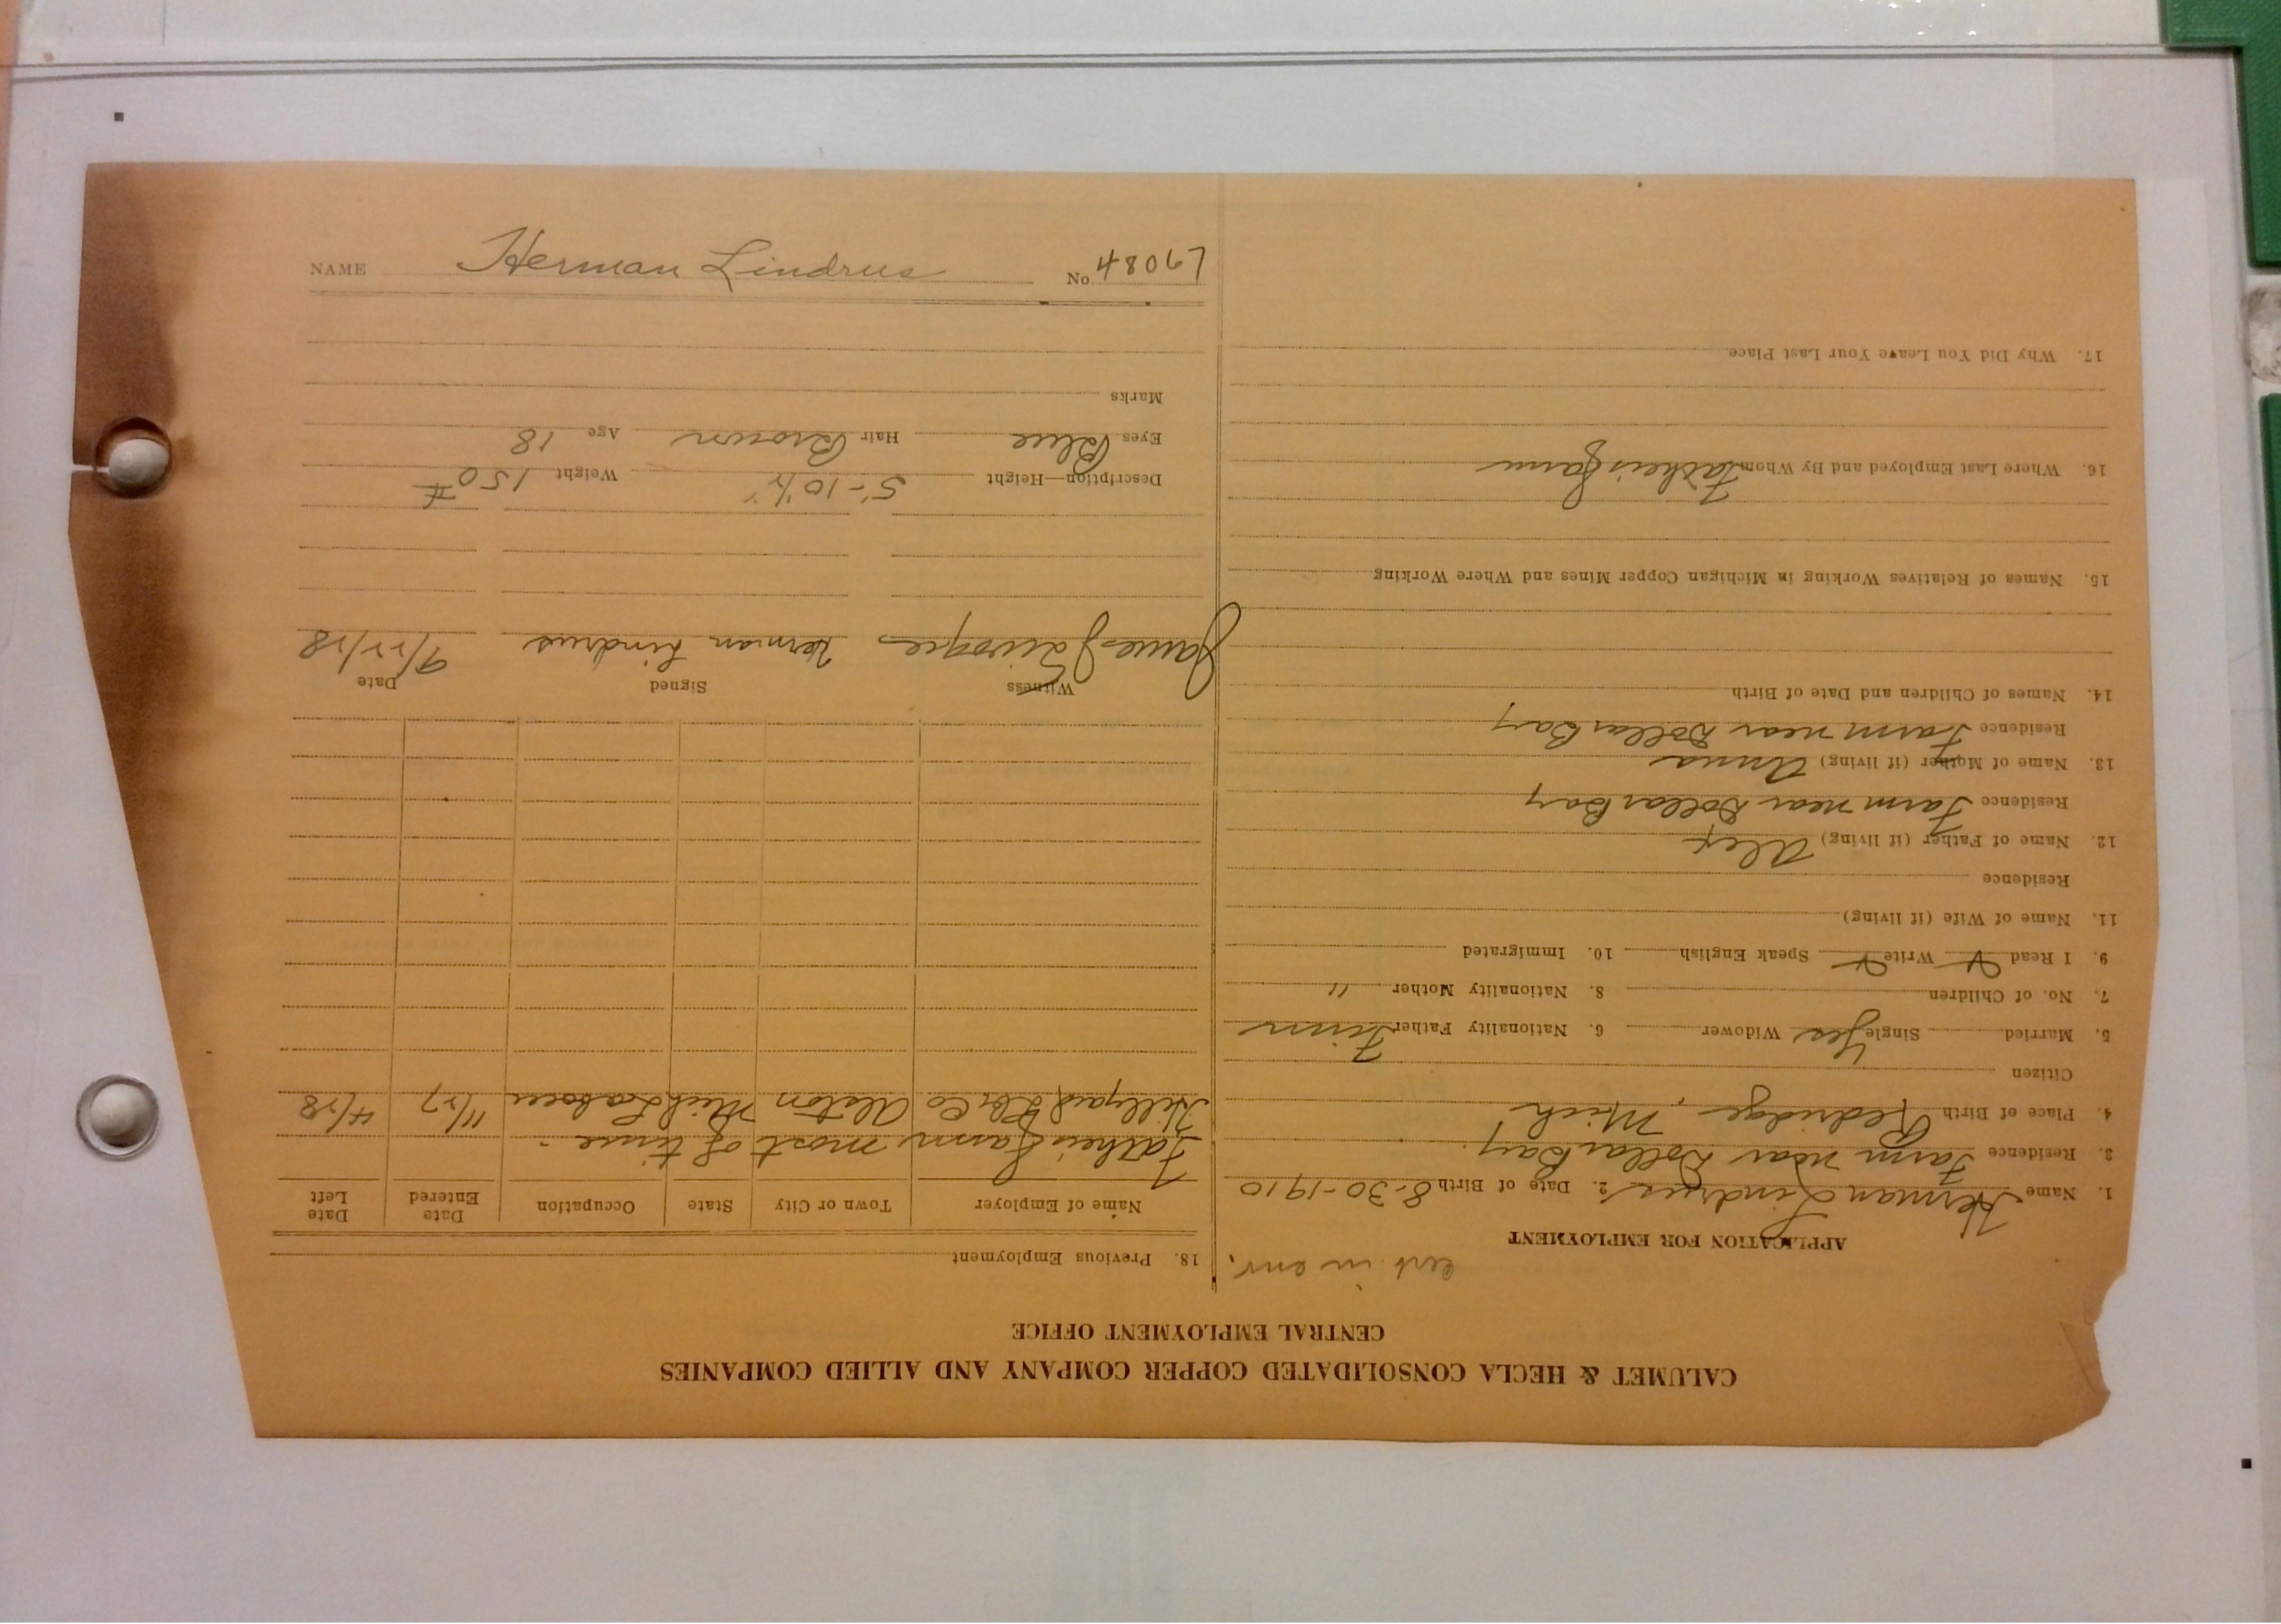 CALUMET & HECLA CONSOLIDATED COPPER COMPANY AND ALLIED COMPANIES
CENTRAL EMPLOYMENT OFFICE
in env.
APPLICATION FOR EMPLOYMENT
1. Name Herman Lindrus 2. Date of Birth 8-30-1910
3. Residence Farm near Dollar Bay.
4. Place of Birth Redridge, Mich
Citizen
5. Married Single Yes Widower 6. Nationality Father Finn
7. No. of Children 8. Nationality Mother "
9. I Read Write Speak English 10. Immigrated
11. Name of Wife (if living)
Residence
12. Name of Father (if living) Alex
Residence Farm near Dollar Bay
13. Name of Mother (if living) Anna
Residence Farm near Dollar Bay
14. Names of Children and Date of Birth
15. Names of Relatives Working in Michigan Copper Mines and Where Working
16. Where Last Employed and By Whom Fathers farm
17. Why Did You Leave Your Last Place
18. Previous Employment
Name of Employer Town or City State Occupation Date Entered Date Left
Fathers farm most of time -
Lbr Co Alston Mich Laborer 11/27 4/28
Witness Signed Date
James Herman Lindrus 9/22/28
Description—Height 5'-10½" Weight 150 #
Eyes Blue Hair Brown Age 18
Marks
NAME Herman Lindrus No. 48067